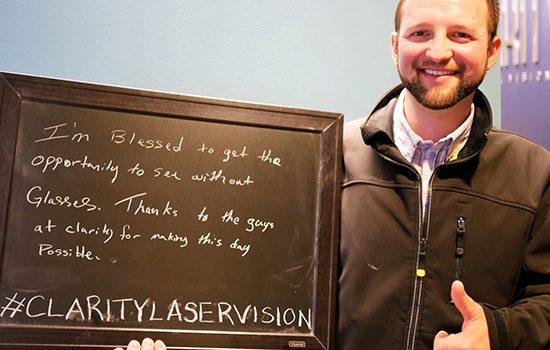 I'm Blessed to get the
opportunity to see without
Glasses. Thanks to the guys
at clarity for making this day
Possible.
#CLARITYLASERVISION
Quartet
VISION